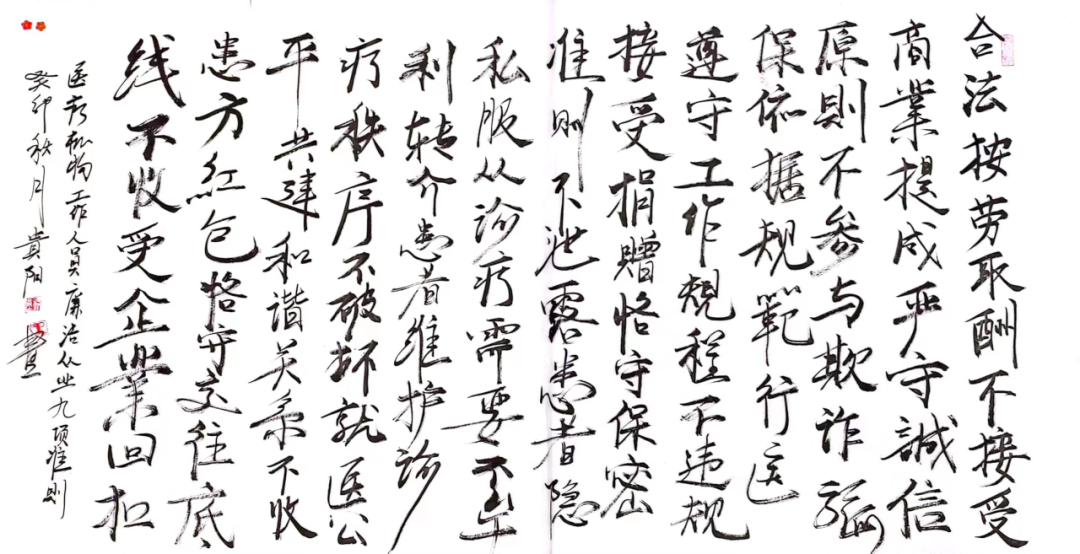 合法按劳取酬不接受
商業提成严守誠信
原則不参与欺诈骗
保依据规範行医
遵守工作規程不违规
接受捐贈恪守保密
准则不泄露患者隐
私服从诊疗需要不牟
利转介患者维护诊
疗秩序不破坏就医公
平共建和谐关系不收
患方紅包恪守交往底
线不收受企業回扣
医疗机构工作人员廉洁从业九项准则
癸卯秋月貴阳